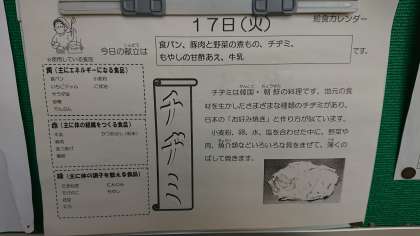 給食カレンダー
17日(火)
今日の献立は
食パン、豚肉と野菜の煮もの、チヂミ、
もやしの甘酢あえ、牛乳
です。
お使用している食品
黄 (主にエネルギーになる食品)
食パン
小麦粉
いちごジャム
ごま油
砂糖
でんぷん
赤 (主に体の組織をつくる食品)
牛乳
豚肉
油あげ
緑 (主に体の調子を整える食品)
にんじん
もやし
チヂミ
チヂミは韓国・朝鮮の料理です。地元の食
材を生かしたさまざまな種類のチヂミがあり、
日本の「お好み焼き」と作り方が似ています。
小麦粉、卵、水、塩を合わせた中に、野菜や
肉、魚介類などいろいろな具をまぜて、薄くの
ばして焼きます。